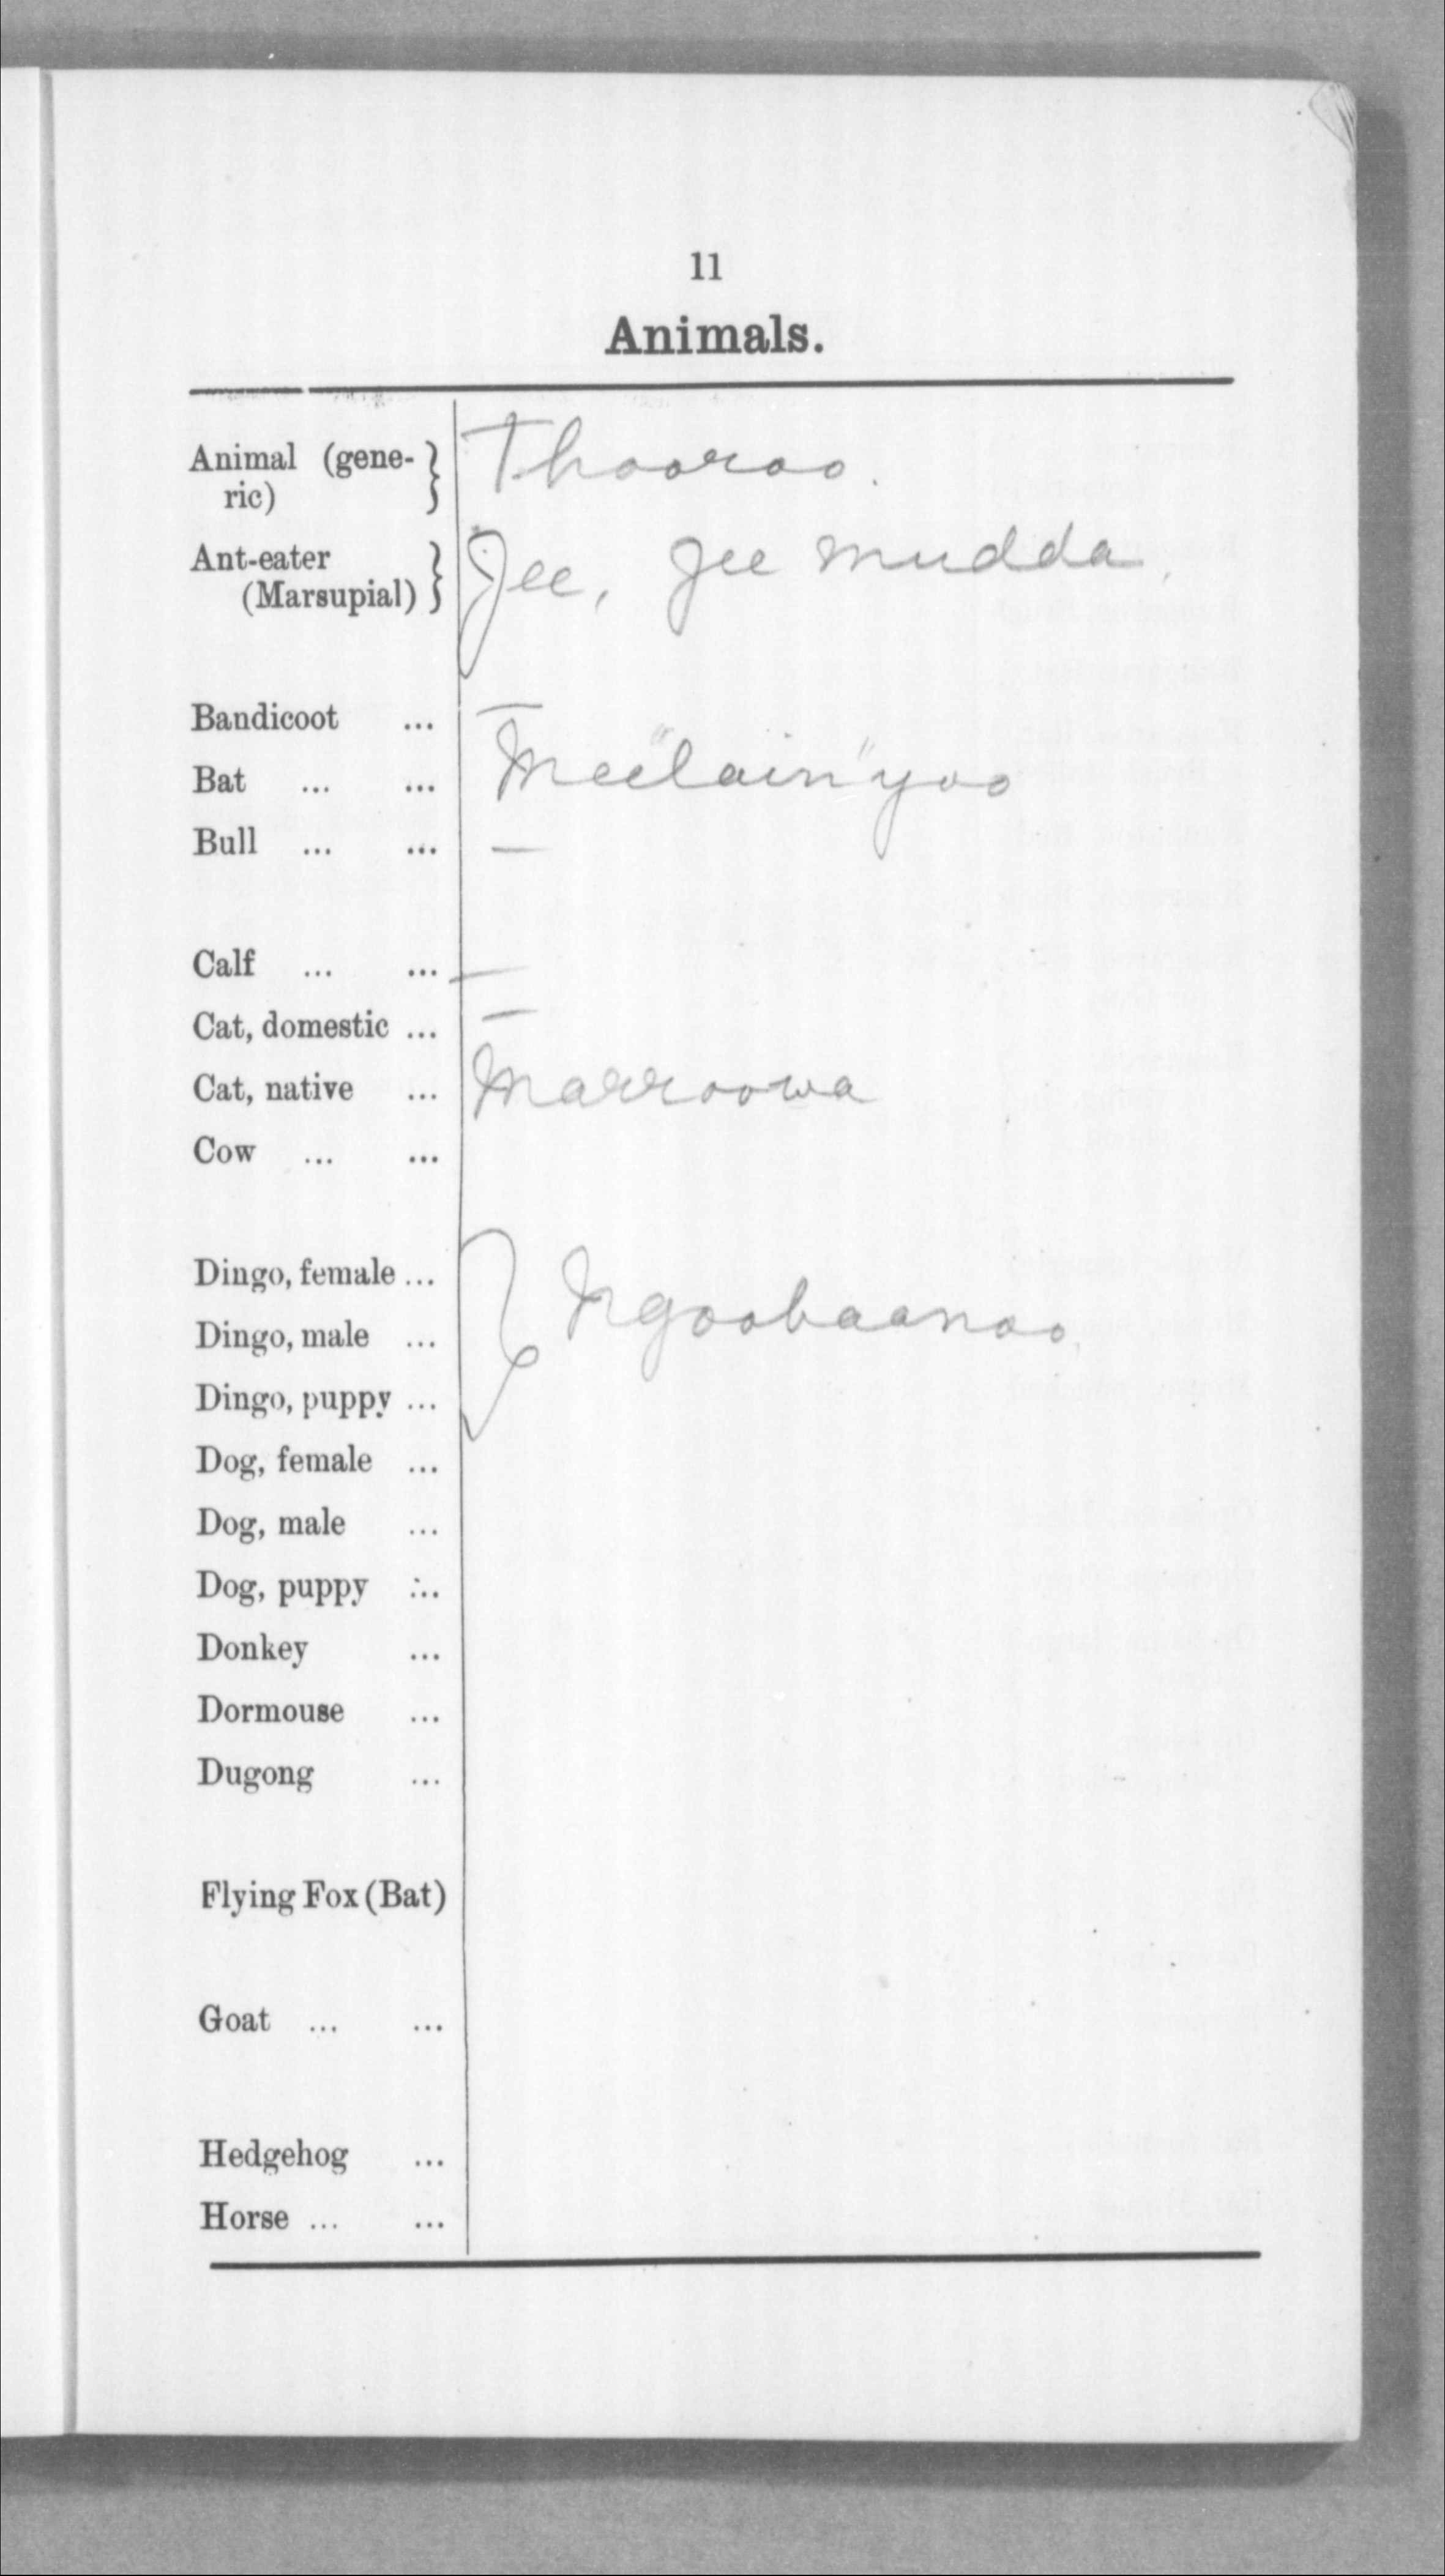 11
Animals.
Animal (gene-
ric) } Thooroo.
Ant-eater
(Marsupial) } Jee, Jee mudda,
Bandicoot ... —
Bat ... ... Meelain"yoo
Bull ... ... —
Calf ... ... —
Cat, domestic ... —
Cat, native ... Marroowa
Cow ... ...
Dingo, female ...
Dingo, male ... } Ngoobaanoo,
Dingo, puppy ...
Dog, female ...
Dog, male ...
Dog, puppy ...
Donkey ...
Dormouse ...
Dugong ...
Flying Fox (Bat)
Goat ... ...
Hedgehog ...
Horse ... ...